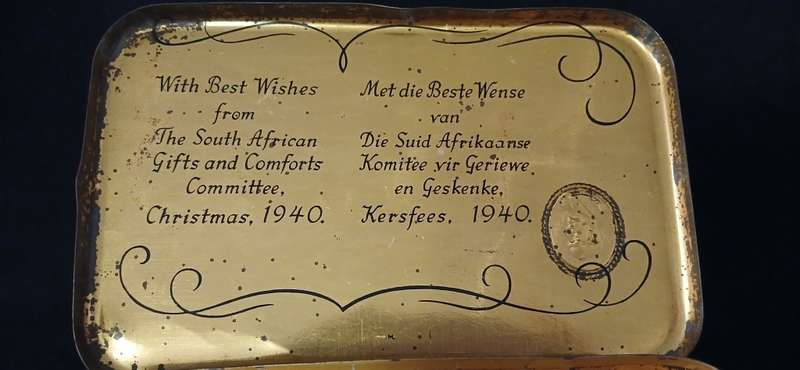 With Best Wishes
from
The South African
Gifts and Comforts
Committee,
Christmas, 1940.
Met die Beste Wense
van
Die Suid Afrikaanse
Komitee vir Geriewe
en Geskenke,
Kersfees, 1940.